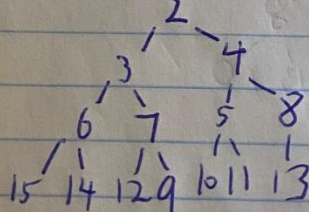 2
3 4
6 7 5 8
15 14 12 9 10 11 13